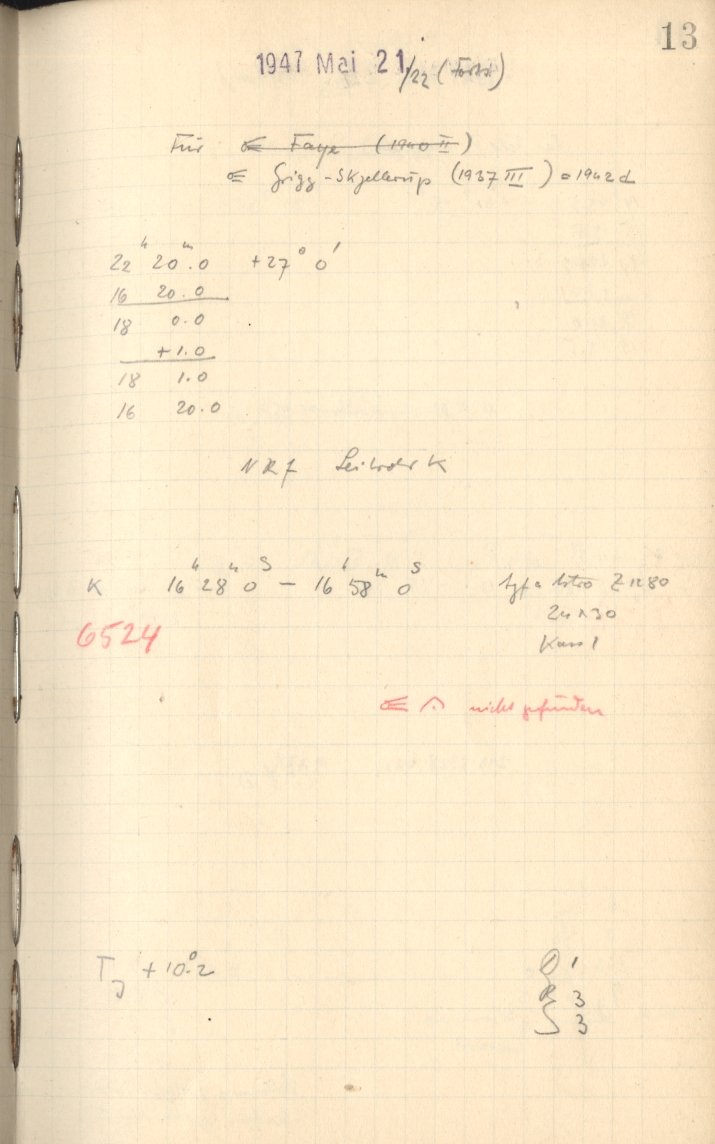 13
1947 Mai 21/22 (Forts)
Für ☄ Faye (1940 II)
☄ Grigg-Skjellerup (1937 III) = 1942 d
22ʰ 20ᵐ.0 +27° 0'
16 20.0
18 0.0
+1.0
18 1.0
16 20.0
K 16ʰ 28ᵐ 0ˢ — 16ʰ 58ᵐ 0ˢ
Agfa Astro Z
24×30
Kass 1
6524
☄ nicht gefunden
T + 10°.2
1
R 3
S 3